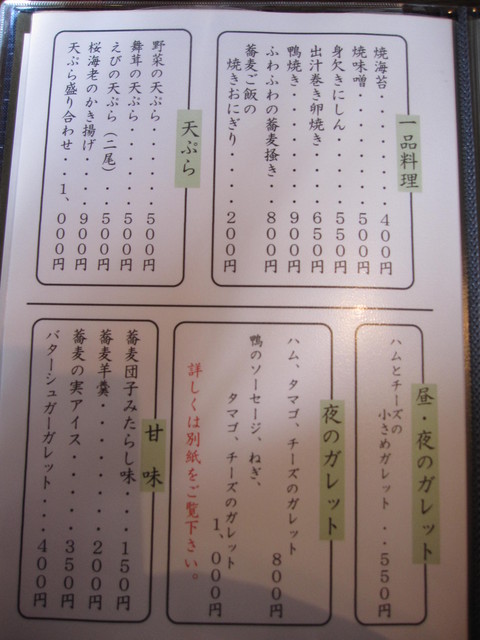 一品料理
焼海苔・・・・・・・400円
焼味噌・・・・・・・500円
身欠きにしん・・・・550円
出汁巻き卵焼き・・・650円
鴨焼き・・・・・・・900円
ふわふわの蕎麦掻き・・800円
蕎麦ご飯の
焼きおにぎり・・・・200円
天ぷら
野菜の天ぷら・・・・500円
舞茸の天ぷら・・・・500円
えびの天ぷら(二尾)・・500円
桜海老のかき揚げ・・・900円
天ぷら盛り合わせ・・・1、000円
昼・夜のガレット
ハムとチーズの
小さめガレット・・550円
夜のガレット
ハム、タマゴ、チーズのガレット
800円
鴨のソーセージ、ねぎ、
タマゴ、チーズのガレット
1、000円
詳しくは別紙をご覧下さい。
甘味
蕎麦団子みたらし味・・・150円
蕎麦羊羹・・・・・・・200円
蕎麦の実アイス・・・・・350円
バターシュガーガレット・・・400円